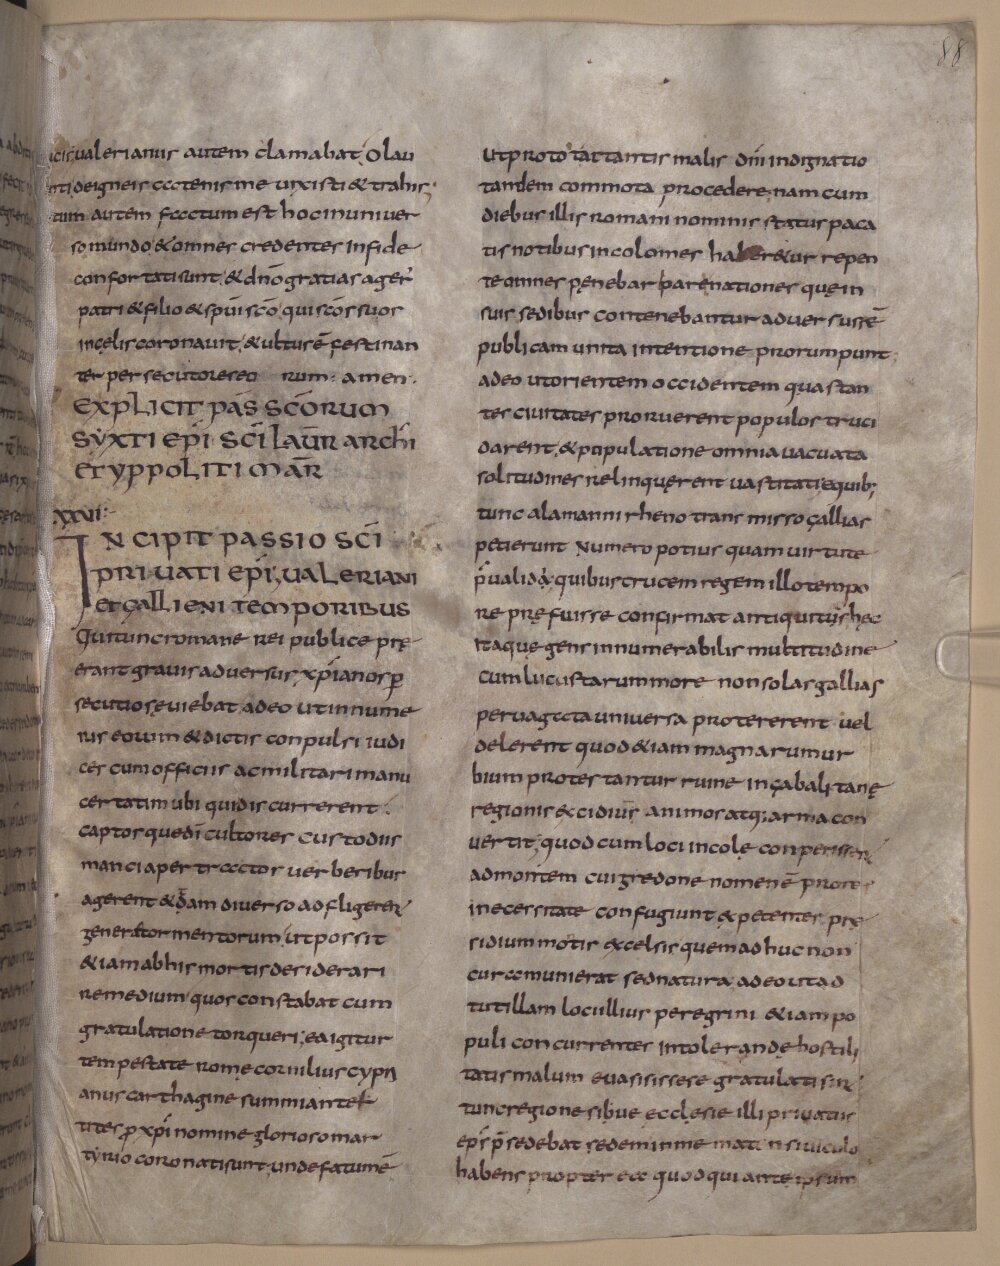 88
cis; ualerianus autem clamabat, O lau
nti deigneis cccteniſme uixisti & trahis;
tum autem fccctum est hoc in uniuer
so mundo, & omnes credentes in fide
confortati sunt, & dn̄o gratias ager̄
patri & filio & sp̄ui sc̄o, qui sc̄os suos
in cęlis coronauit, & ultus ē festinan
ter persecutores eo rum. amen.
EXPLICIT PAS SC̄ORUM
SYXTI EP̄I SC̄I LAUR̄ ARCHI
ET YPPOLITI MAR̄
XXVI:
INCIPIT PASSIO SC̄I
PRIUATI EP̄I, UALERIANI
ET GALLIENI TEMPORIBUS
Qui tunc romane rei publice prę
erant grauis aduersus xp̄ianos ꝑ
secutio seuiebat adeo ut in nume
ris eorum & dictis conpulsi iudi
ces cum officiis ac militari manu
certatim ubi quidis currerent.
captos quę dī cultores custodiis
manciapertrccctos uerberibus
agerent & dam diuerso adfligerent
genera tormentorum, ut possit
& iam ab his mortis desiderari
remedium quos constabat cum
gratulatione torqueri; ea igitur
tempestate rome cornilius cypri
anus carthagine summi antes
tites ꝓ xp̄i nomine glorioso mar
tyrio coronati sunt, unde fatum ē
Ut proto tat tantis malis dn̄i indignatio
tandem commota procedere, nam cum
diebus illis romani nominis status paca
tis notibus incolomes haberetur repen
te omnes pęne barbarę nationes quę in
suis sedibus contenebantur aduersus rē
publicam unita intentione prorumpunt
adeo ut orientem occidentem quastan
tes ciuitates proruerent populos truci
darent, & populatione omnia uacuata
solitudines relinquerent uastitati equib;
tunc alamanni rheno transmisso gallias
petierunt numero potius quam uirtute
p̄ualida, quibus crucem regem illo tempo
re pręfuisse confirmat antiquitus hęc
itaque gens innumerabilis multitudine
cum lucustarum more non solas gallias
peruagccta uniuersa protererent uel
delerent quod & iam magnarum ur
bium protestantur ruine in gabalitanę
regionis excidiūs animos atq; arma con
uertit, quod cum loci incole conperissent
ad montem cui gredone nomen ē proit
i necessitate confugiunt & petentes prę
sidium motis excelsis quem adhuc non
cur comunierat sed natura, adeo ut ad
tutillam loculliųs peregrini & iam po
puli concurrentes intolerandę hostili
tatis malum euasisissese gratulati sin̄
tunc regione sibue ecclesie illi priuatus
ep̄s p̄sedebat sedem in mematensi uiculo
habens propter ecc quod qui ante ipsum